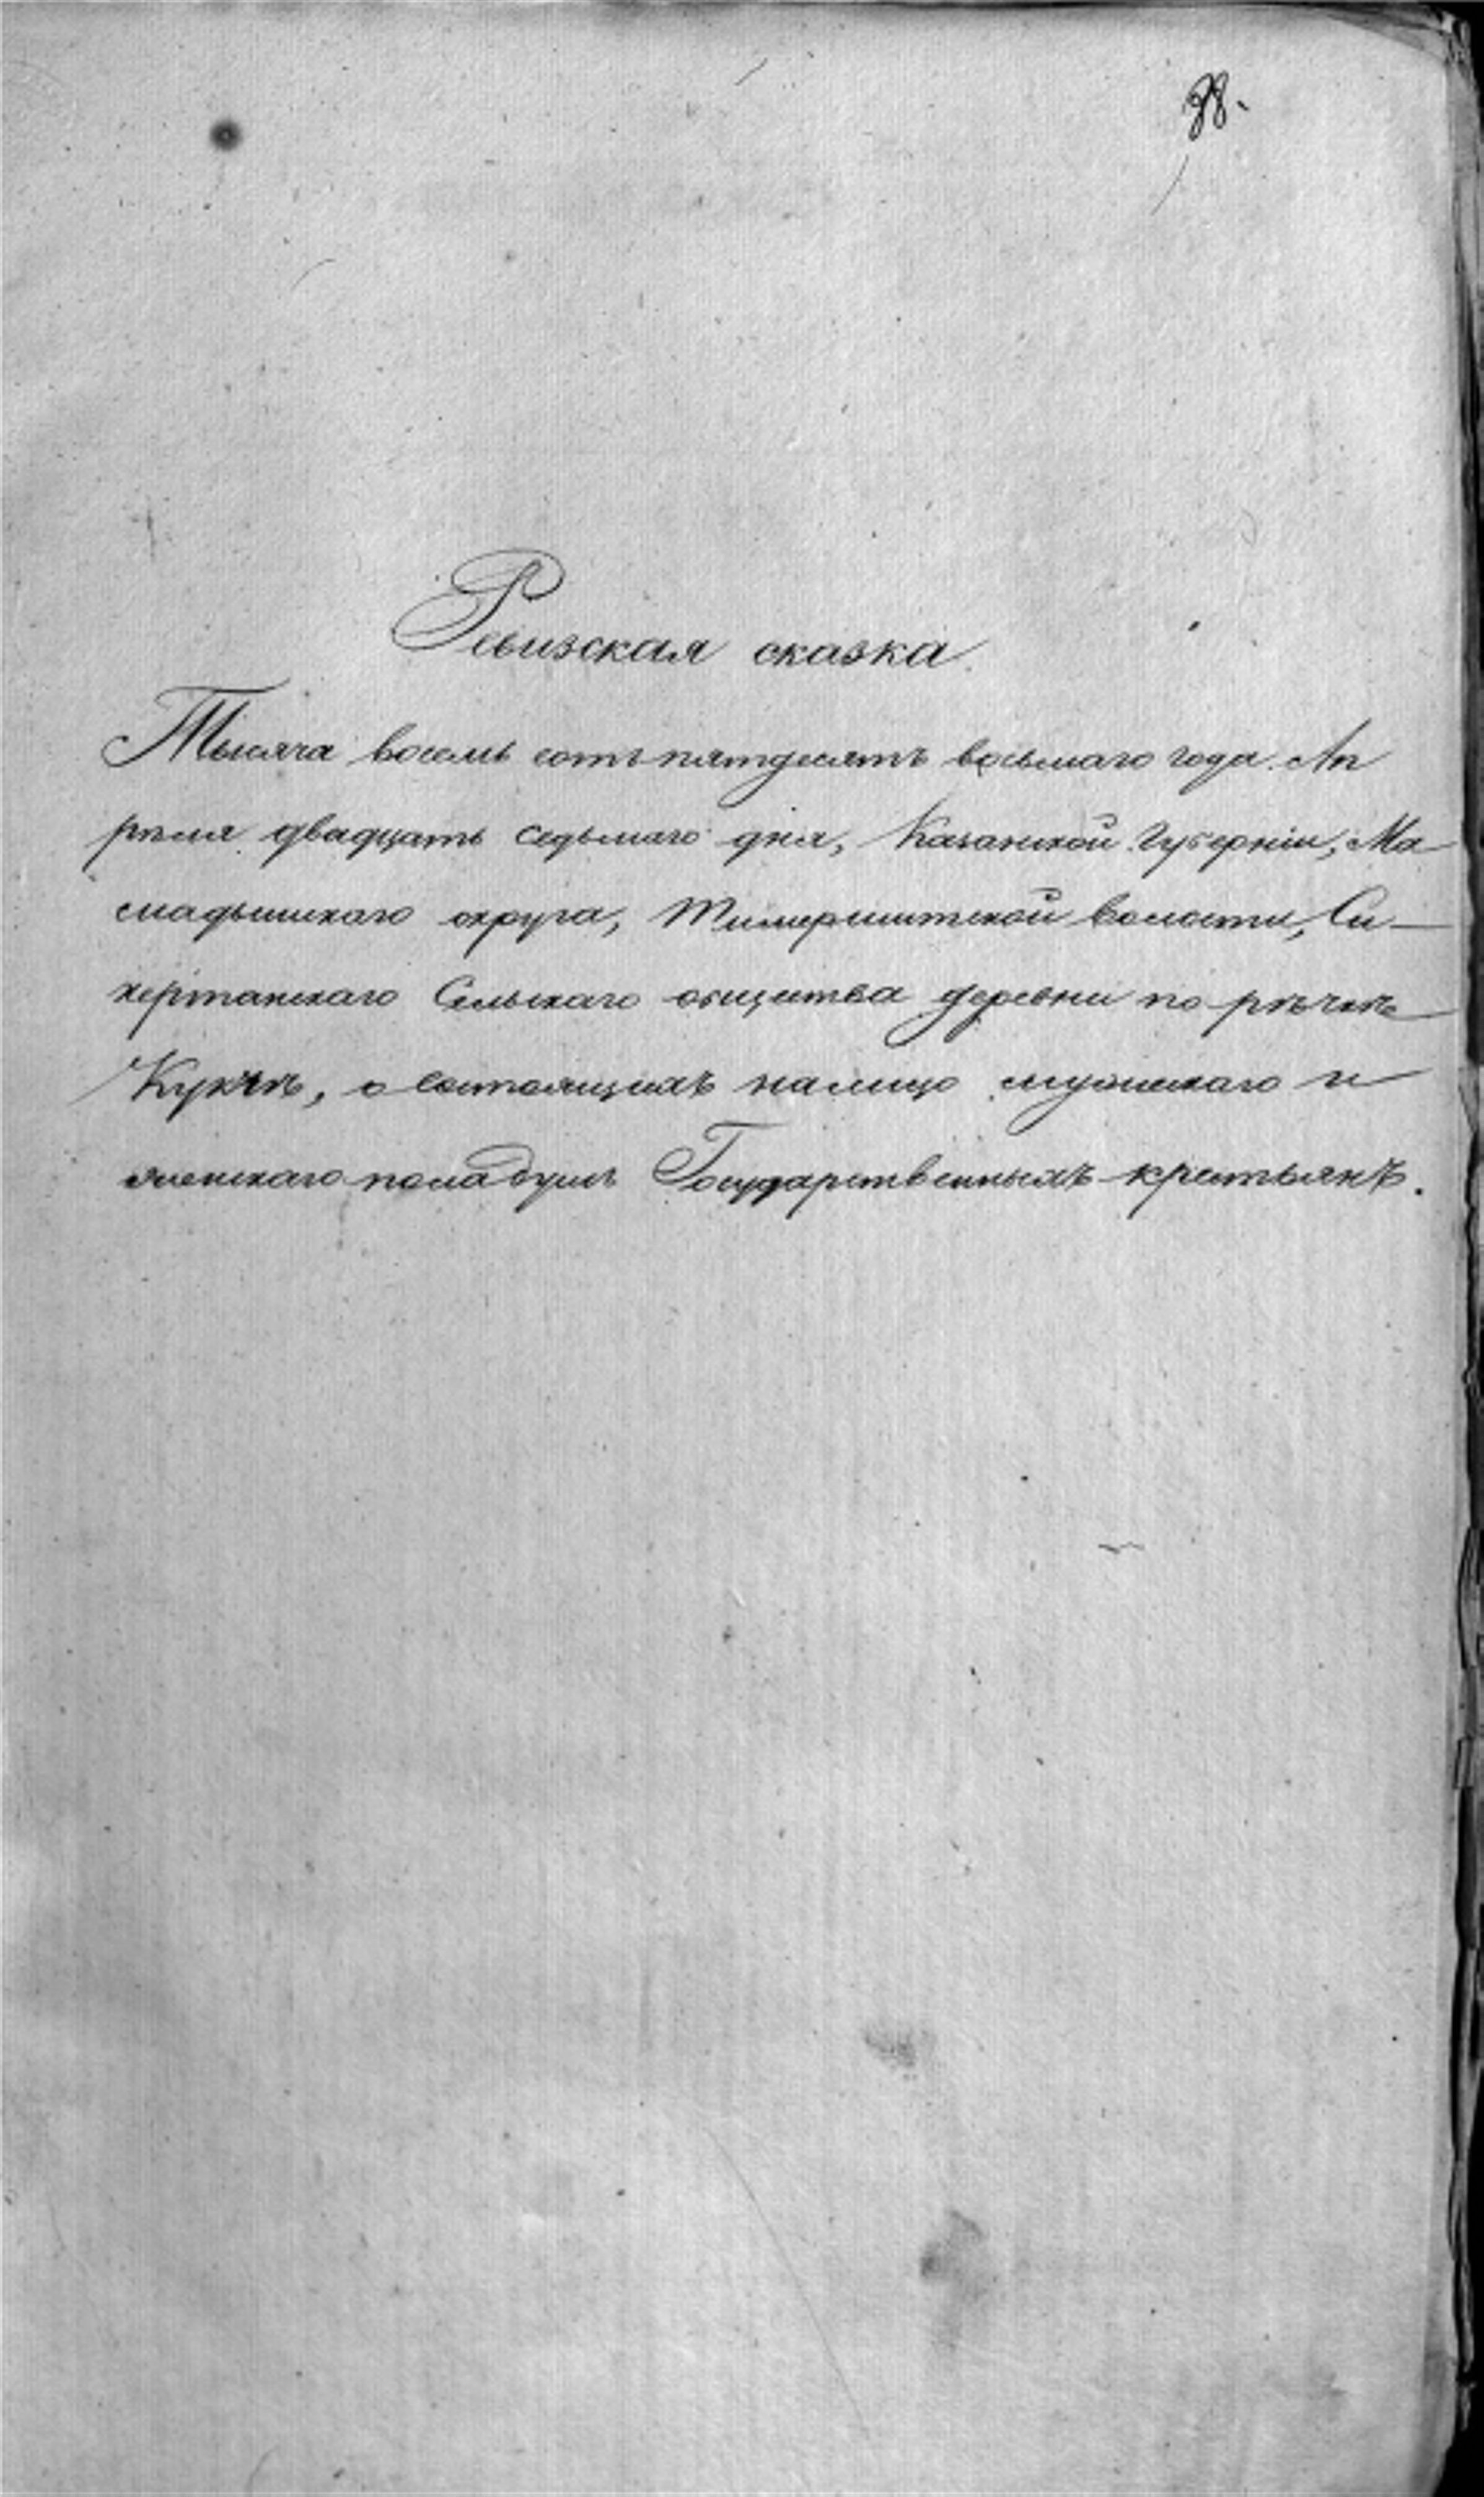 38.
Ревизская сказка.
Тысяча восемь сотъ пятдесятъ восьмаго года. Ап
рѣля двадцать седьмаго дня, Казанской Губерніи, Ма-
мадышскаго округа, Тимершитской волости, Си-
хертанскаго Сельскаго общества деревни по рѣчкѣ
Кукчѣ, о состоящихъ налицо мужескаго и
женскаго пола душъ Государственныхъ крестьянъ.